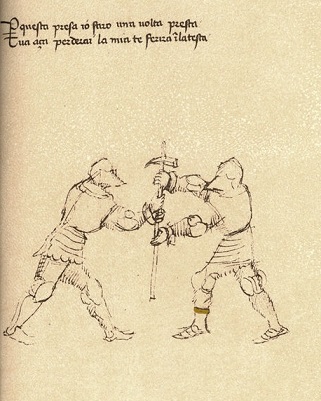 P questa presa iò faro una uolta presta
Tua aça perderai la mia te ferira ĩ latesta